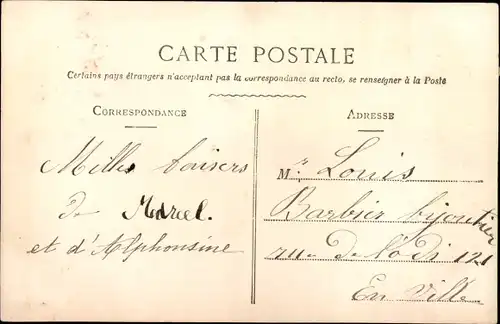 CARTE POSTALE
Certains pays étrangers n'acceptant pas la correspondance au recto, se renseigner à la Poste
CORRESPONDANCE
Mille baisers
de Marcel.
et d'Alphonsine
ADRESSE
Mr. Louis
Barbier bijoutier
rue de Lodi 121
En Ville